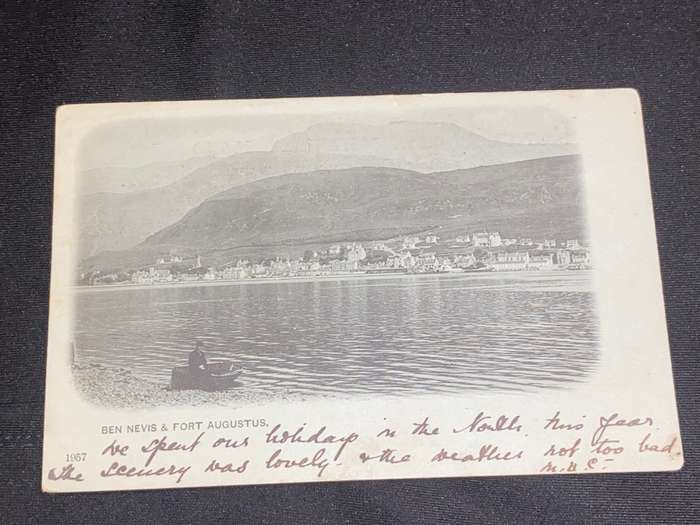 BEN NEVIS & FORT AUGUSTUS.
we spent our holiday in the North this year
1957
The scenery was lovely & the weather not too bad.